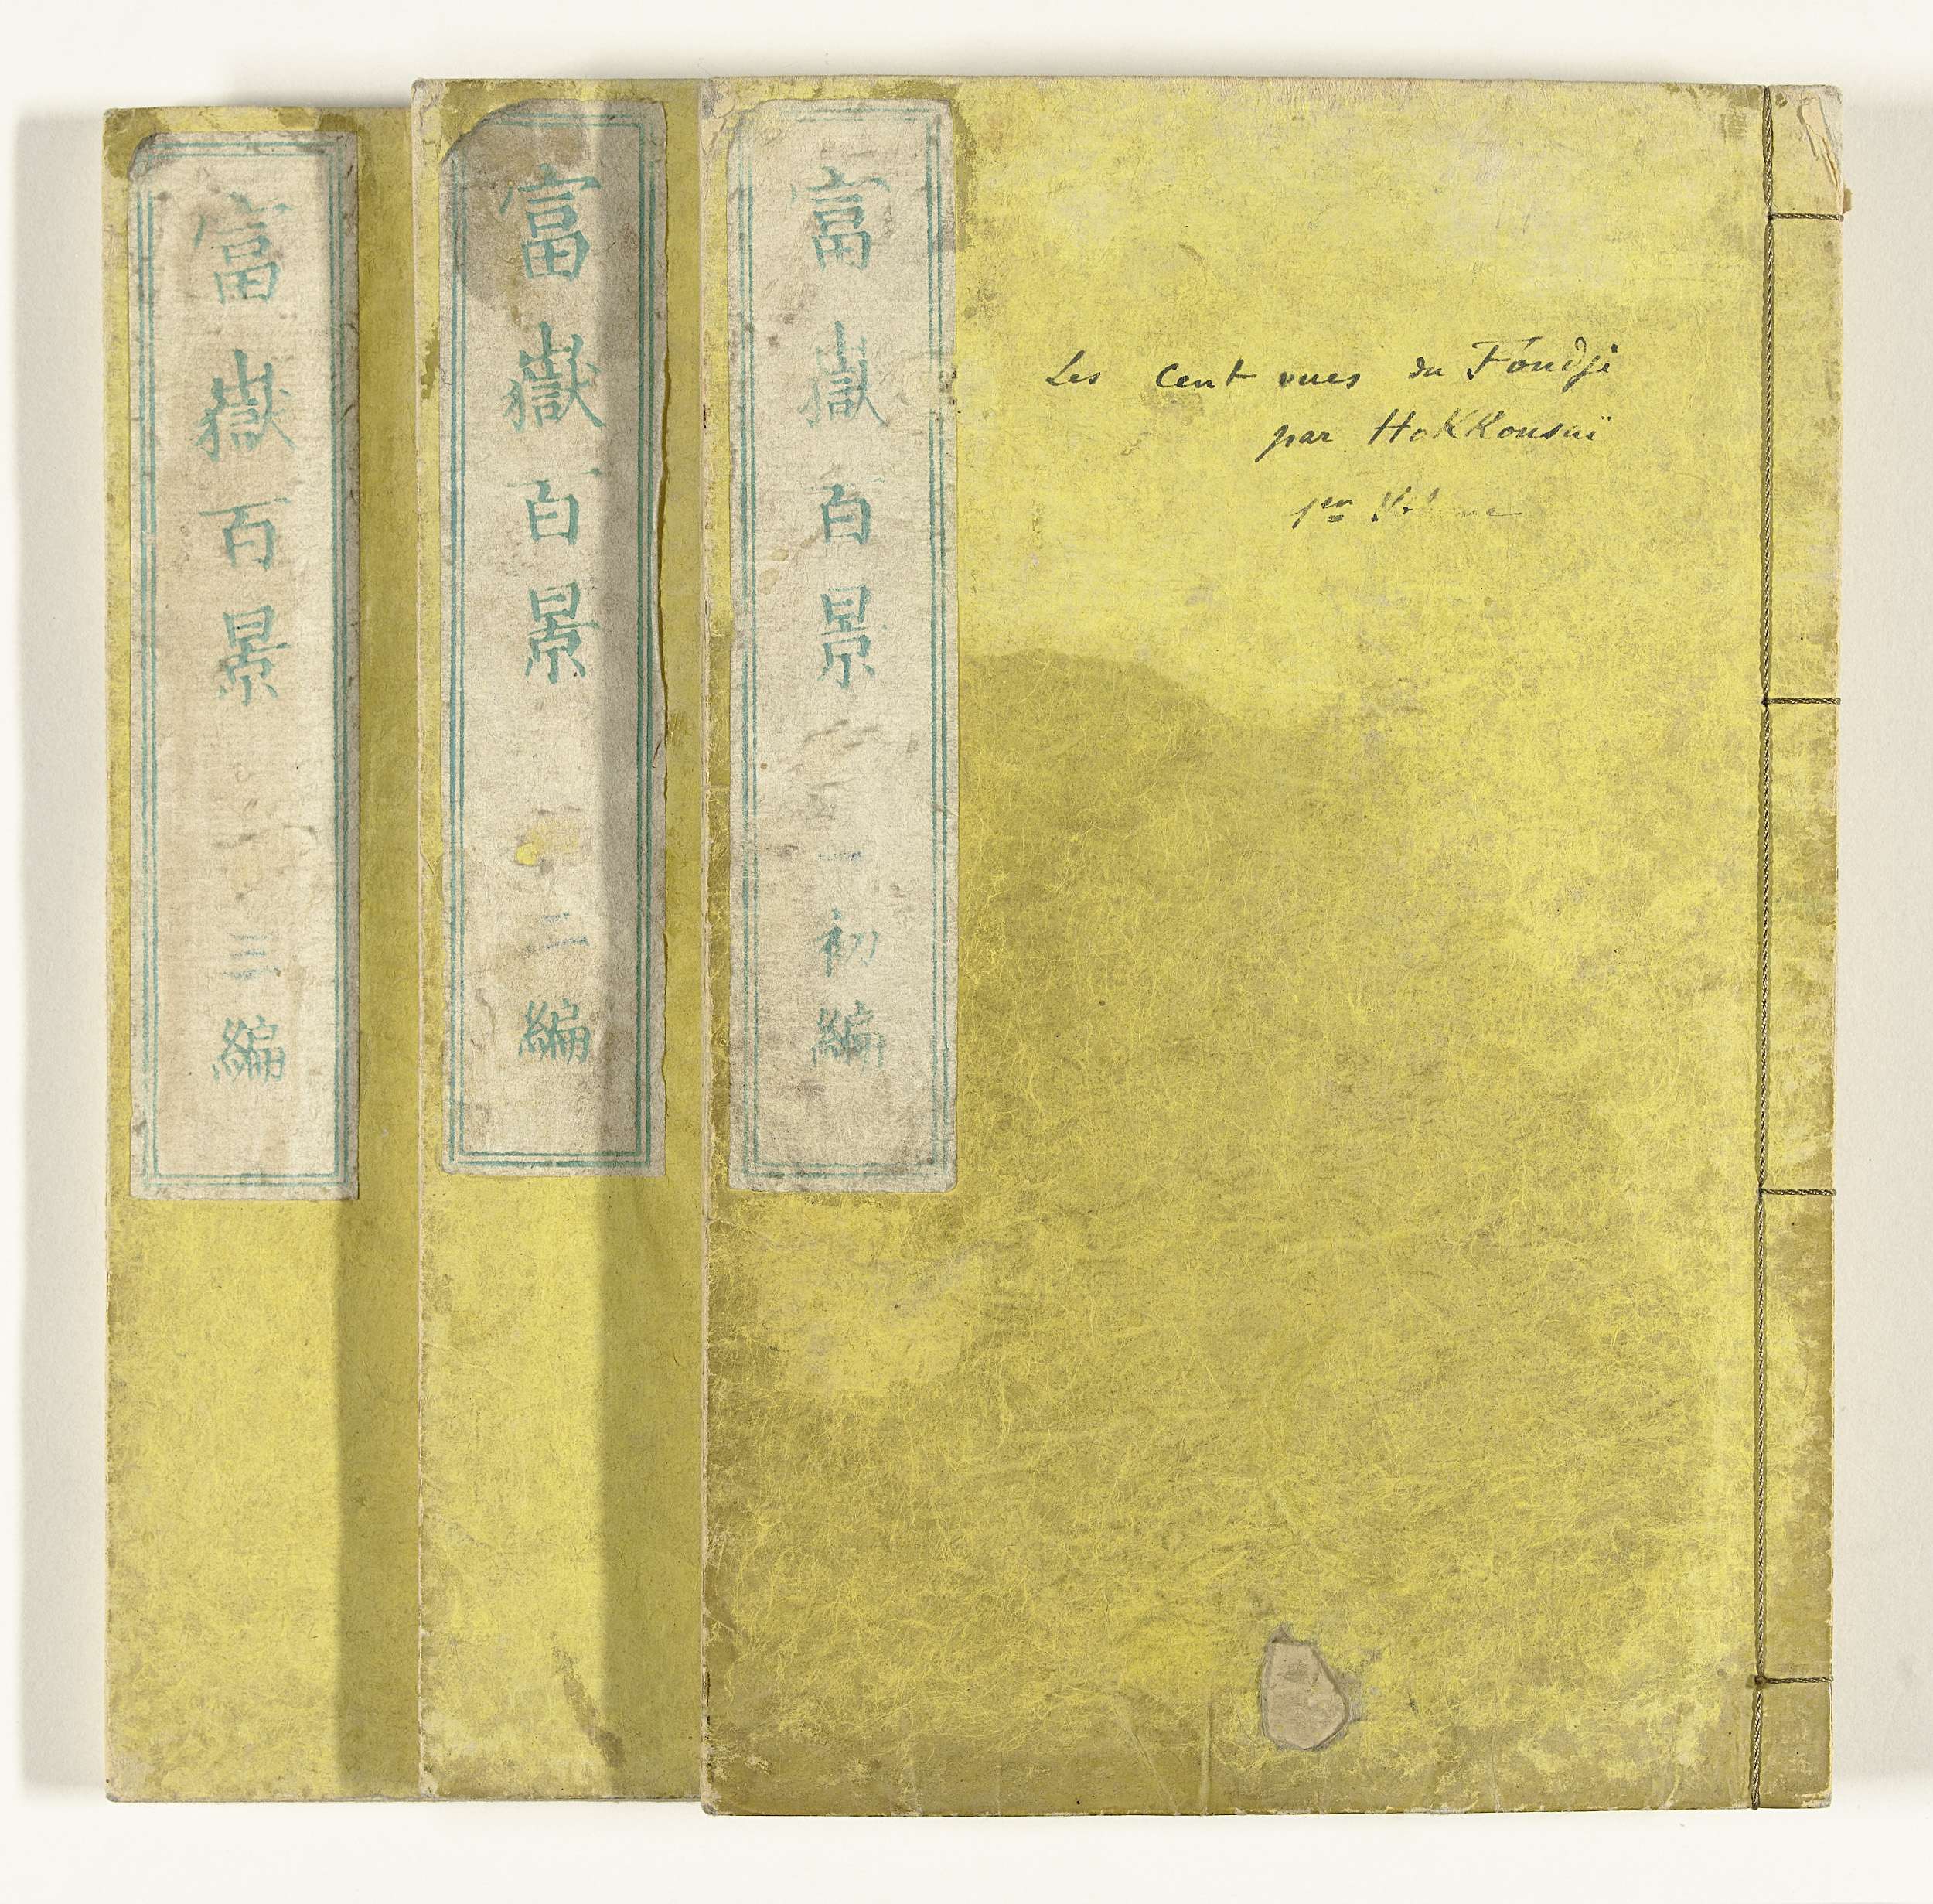 富嶽百景 初編
富嶽百景 二編
富嶽百景 三編
Les Cent vues du Foudji
par HoKKousaï
1er